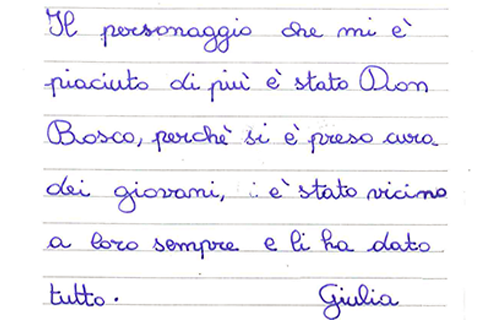 Il personaggio che mi è
piaciuto di più è stato Don
Bosco, perchè si è preso cura
dei giovani, è stato vicino
a loro sempre e li ha dato
tutto. Giulia